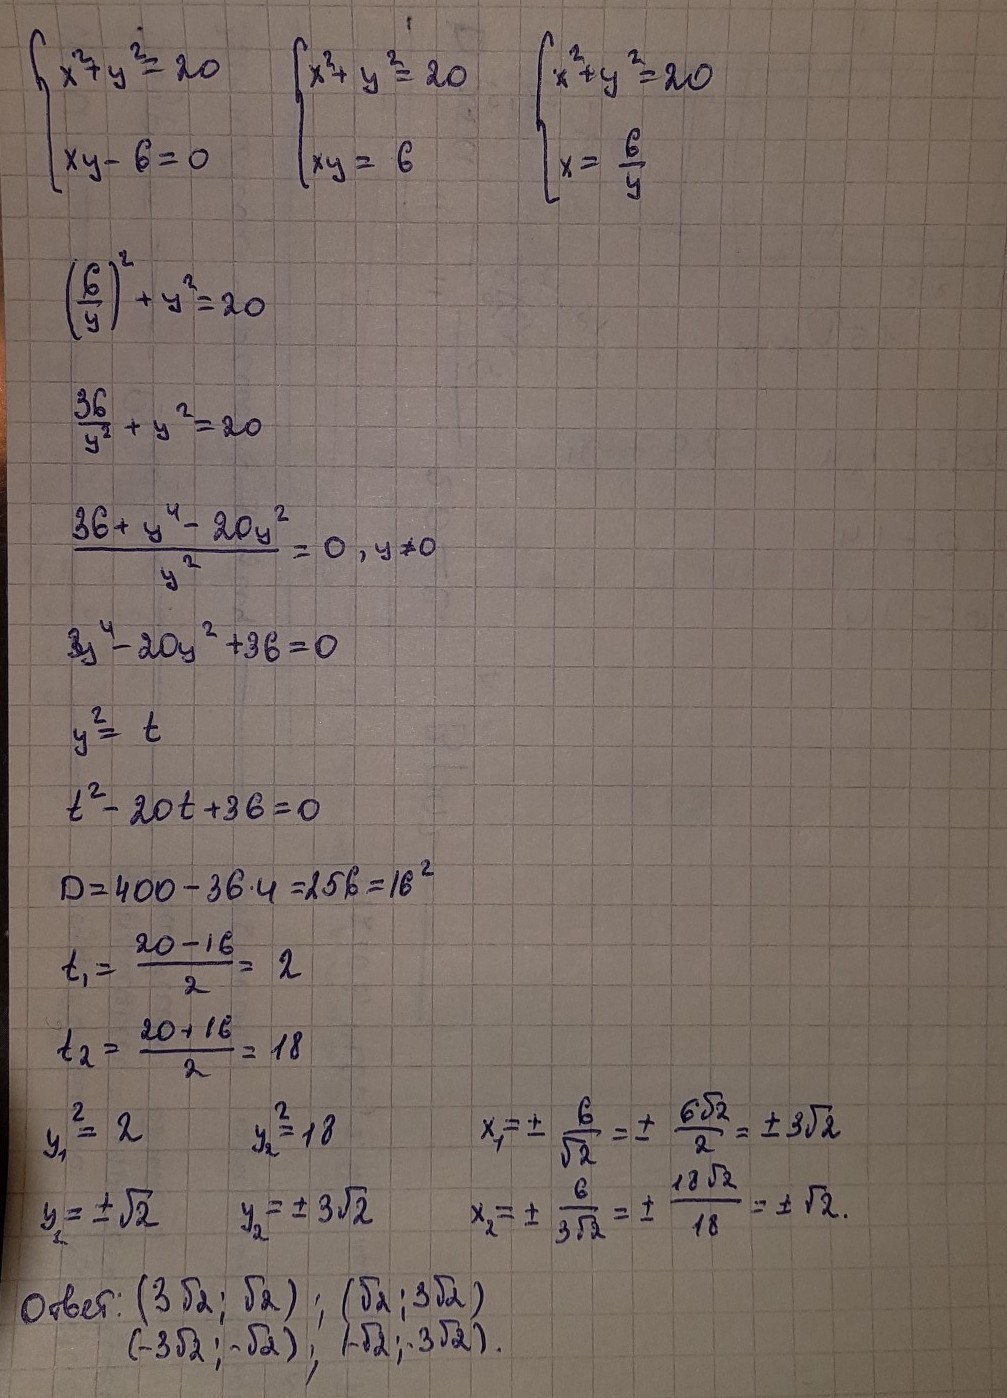 x²+y²=20 x²+y²=20 x²+y²=20
xy-6=0 xy=6 x=6/y
(6/y)²+y²=20
36/y²+y²=20
(36+y⁴-20y²)/y²=0, y≠0
y⁴-20y²+36=0
y²=t
t²-20t+36=0
D=400-36·4=256=16²
t₁=(20-16)/2=2
t₂=(20+16)/2=18
y₁²=2 y₂²=18 x₁=±6/√2=±6√2/2=±3√2
y₁=±√2 y₂=±3√2 x₂=±6/3√2=±18√2/18=±√2.
Ответ: (3√2; √2); (√2; 3√2)
(-3√2; -√2); (-√2; -3√2).